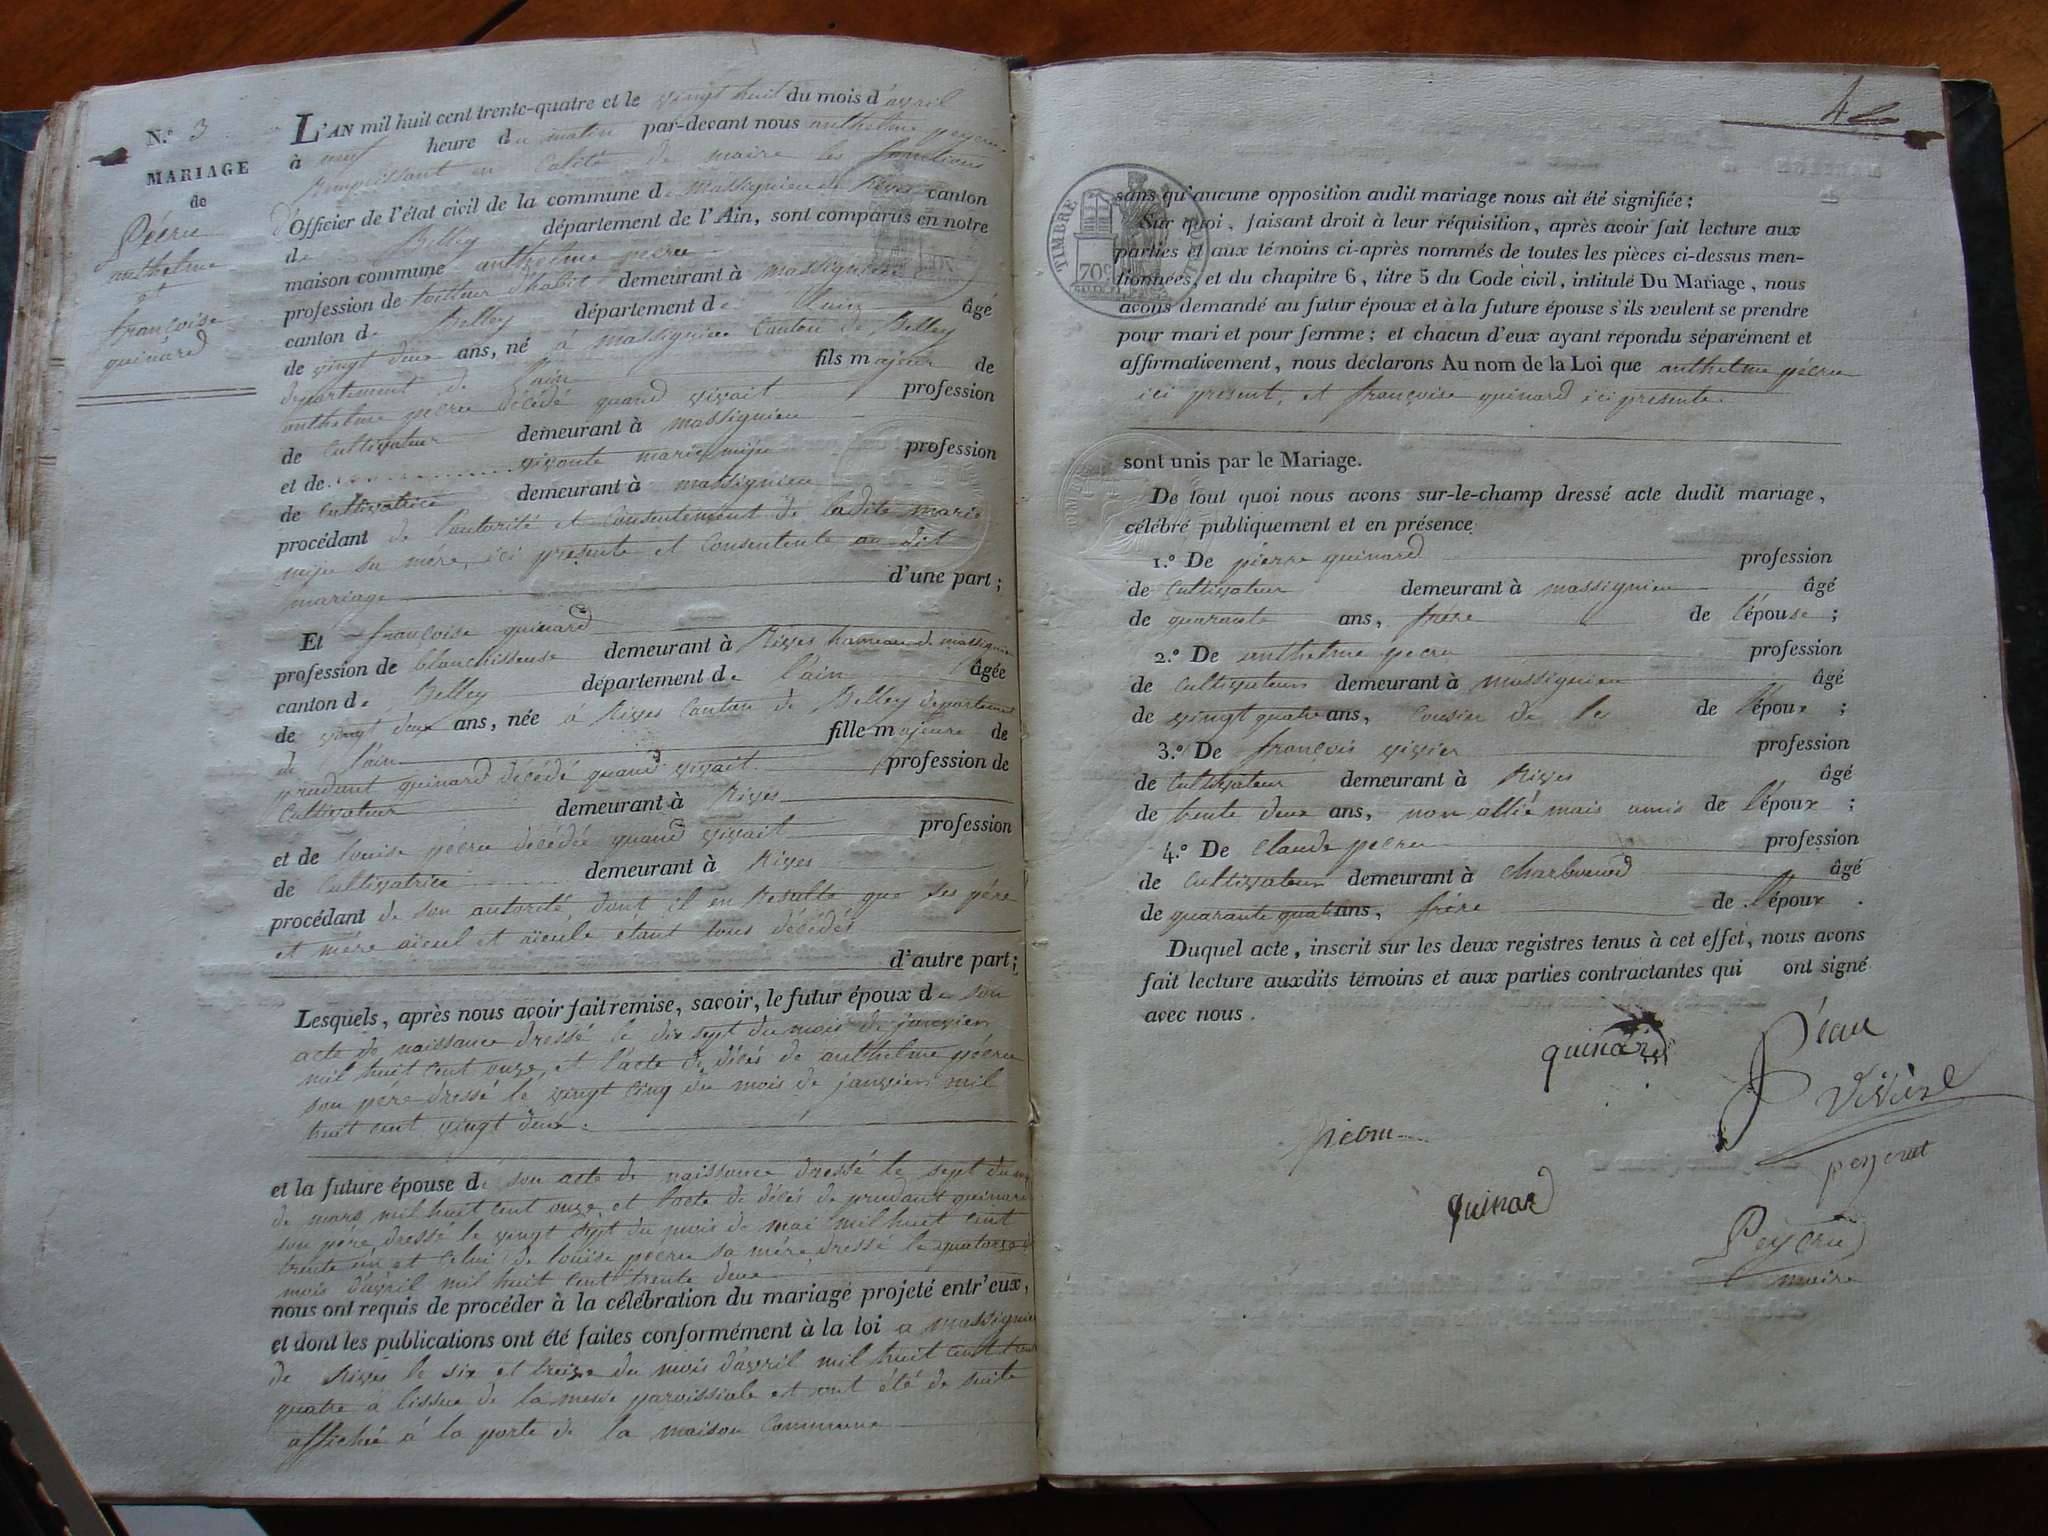 N.º 3
MARIAGE
de
Pécru
anthelme
et
françoise
quinard
L'AN mil huit cent trente-quatre et le vingt huit du mois d'avril
à neuf heure du matin par-devant nous anthelme peycru
Remplissant en Calité de maire les fonctions
d'Officier de l'état civil de la commune de massignieu de Rives canton
de Belley département de l'Ain, sont comparus en notre
maison commune anthelme pecru
profession de tailleur d'habit demeurant à massignieu
canton de Belley département de âgé
de vingt deux ans, né à massignieu Canton de Belley
departement de l'ain fils majeur de
anthelme pecru décédé quand vivait profession
de Cultivateur demeurant à massignieu
et de vivante marie miju profession
de Cultivatrice demeurant à massignieu
procédant de l'autorité et Consentement de ladite marie
miju sa mére, ici presente et Consentente au dit
mariage d'une part;
Et françoise quinard
profession de blanchisseuse demeurant à Rives hameau de massignieu
canton de Belley département de l'ain âgée
de vingt deux ans, née à Rives Canton de Belley departement
de l'ain fille majeure de
prudant quinard décédé quand vivait profession de
Cultivateur demeurant à Rives
et de louise pécru décédée quand vivait profession
de Cultivatrice demeurant à Rives
procédant de son autorité, dont il en Resulte que ses pére
et mére aïeul et aïeule étant tous décédés
d'autre part;
Lesquels, après nous avoir fait remise, savoir, le futur époux de son
acte de naissance dressé le dix sept du mois de janvier
mil huit cent onze, et l'acte de décés de anthelme pécru
son pére dressé le vingt cinq du mois de janvier mil
huit cent vingt deux.
et la future épouse de son acte de naissance dressé le sept du mois
de mars mil huit cent onze et l'acte de décés de prudant quinard
son pére dressé le vingt sept du mois de mai mil huit cent
trente un et Celui de louise pecru sa mére dressé le quatorze
mois d'avril mil huit cent trente deux
nous ont requis de procéder à la célébration du mariage projeté entr'eux,
et dont les publications ont été faites conformément à la loi a massignieu
de Rives le six et treize du mois d'avril mil huit cent trente
quatre a l'issue de la messe paroissiale et ont été de suite
affiché á la porte de la maison Commune
TIMBRE ROYAL
70 c
sans qu'aucune opposition audit mariage nous ait été signifiée;
Sur quoi, faisant droit à leur réquisition, après avoir fait lecture aux
parties et aux témoins ci-après nommés de toutes les pièces ci-dessus men-
tionnées, et du chapitre 6, titre 5 du Code civil, intitulé Du Mariage, nous
avons demandé au futur époux et à la future épouse s'ils veulent se prendre
pour mari et pour femme; et chacun d'eux ayant répondu séparément et
affirmativement, nous déclarons Au nom de la Loi que anthelme pécru
ici present, et françoise quinard ici presente.
sont unis par le Mariage.
De tout quoi nous avons sur-le-champ dressé acte dudit mariage,
célébré publiquement et en présence
1.º De pierre quinard profession
de Cultivateur demeurant à massignieu âgé
de quarante ans, frére de l'épouse;
2.º De anthelme pecru profession
de Cultivateur demeurant à massignieu âgé
de vingt quatre ans, Cousin de le de l'époux;
3.º De françois vivier profession
de Cultivateur demeurant à Rives âgé
de trente deux ans, non allié mais amis de l'époux;
4.º De Claude pecru profession
de Cultivateur demeurant à Charbonod âgé
de quarante quatre ans, frére de l'époux.
Duquel acte, inscrit sur les deux registres tenus à cet effet, nous avons
fait lecture auxdits témoins et aux parties contractantes qui ont signé
avec nous.
quinard
quinard
Peycru
maire